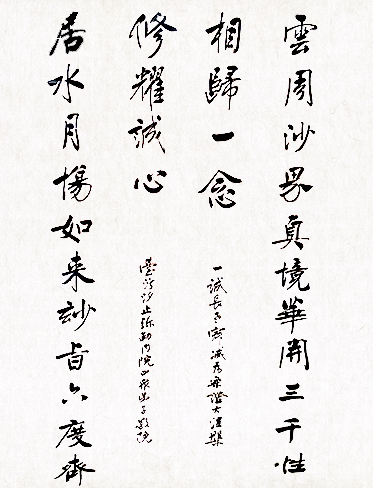 雲周沙界真境華開三千性
相歸一念
一誠長老寂滅為樂證大涅槃
居水月場如来妙旨六度齊
修耀誠心
臺灣汐止弥勒內院四眾弟子敬輓